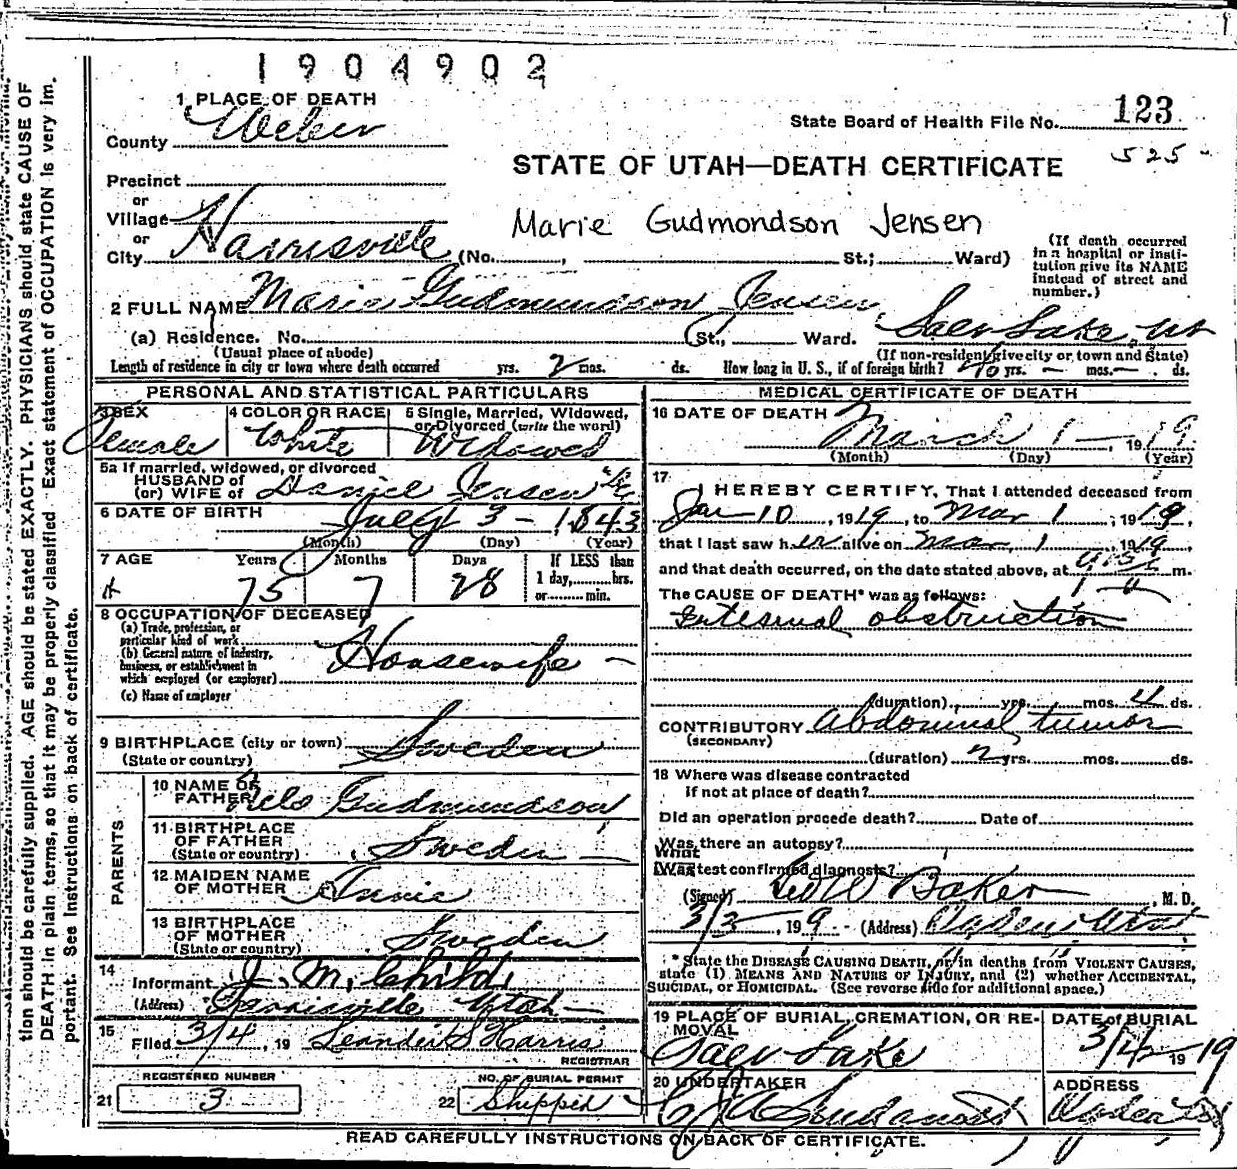 1904902
1 PLACE OF DEATH
County Weber
State Board of Health File No. 123
525-
STATE OF UTAH—DEATH CERTIFICATE
Precinct
or
Village
or
City Harrisville (No. , St.; Ward)
Marie Gudmondson Jensen
(If death occurred in a hospital or insti-
tution give its NAME
instead of street and
number.)
2 FULL NAME Marie Gudmundson Jensen
(a) Residence. No. (St., Ward. Salt Lake, Ut
(Usual place of abode)
(If non-resident give city or town and State)
Length of residence in city or town where death occurred yrs. 2 mos. ds. How long in U. S., if of foreign birth? 40 yrs. - mos. - ds.
PERSONAL AND STATISTICAL PARTICULARS
3 SEX Female
4 COLOR OR RACE White
5 Single, Married, Widowed,
or Divorced (write the word)
Widowed
5a If married, widowed, or divorced
HUSBAND of
(or) WIFE of Daniel Jensen
6 DATE OF BIRTH July 3 - 1843
(Month) (Day) (Year)
7 AGE Years Months Days If LESS than
1 day, hrs.
or min.
75 7 28
8 OCCUPATION OF DECEASED
(a) Trade, profession, or
particular kind of work
(b) General nature of industry,
business, or establishment in
which employed (or employer)
Housewife -
(c) Name of employer
9 BIRTHPLACE (city or town)
(State or country)
Sweden
PARENTS
10 NAME OF
FATHER Nels Gudmundson
11 BIRTHPLACE
OF FATHER
(State or country) Sweden
12 MAIDEN NAME
OF MOTHER Annie
13 BIRTHPLACE
OF MOTHER
(State or country) Sweden
14
Informant J. M. Child
(Address) Harrisville Utah
15
Filed 3/4, 19 Harris
REGISTRAR
REGISTERED NUMBER
21 3
NO. OF BURIAL PERMIT
22 Shipped
MEDICAL CERTIFICATE OF DEATH
16 DATE OF DEATH
March 1 - 1919
(Month) (Day) (Year)
17
I HEREBY CERTIFY, That I attended deceased from
Jan 10, 1919, to Mar 1, 1919,
that I last saw her alive on Mar 1, 1919,
and that death occurred, on the date stated above, at m.
The CAUSE OF DEATH* was as follows:
Intestinal obstruction
(duration) yrs. mos. 4 ds.
CONTRIBUTORY Abdominal tumor
(SECONDARY)
(duration) 2 yrs. mos. ds.
18 Where was disease contracted
if not at place of death?
Did an operation precede death? Date of
Was there an autopsy?
What
Was test confirmed diagnosis?
(Signed) Baker, M. D.
3/3, 19 9 - (Address) Ogden Utah
*State the DISEASE CAUSING DEATH, or in deaths from VIOLENT CAUSES,
state (1) MEANS AND NATURE OF INJURY, and (2) whether ACCIDENTAL,
SUICIDAL, or HOMICIDAL. (See reverse side for additional space.)
19 PLACE OF BURIAL, CREMATION, OR RE-
MOVAL
Salt Lake
DATE of BURIAL
3/4 1919
20 UNDERTAKER
ADDRESS
Ogden
READ CAREFULLY INSTRUCTIONS ON BACK OF CERTIFICATE.
tion should be carefully supplied. AGE should be stated EXACTLY. PHYSICIANS should state CAUSE OF
DEATH in plain terms, so that it may be properly classified. Exact statement of OCCUPATION is very im.
portant. See Instructions on back of certificate.